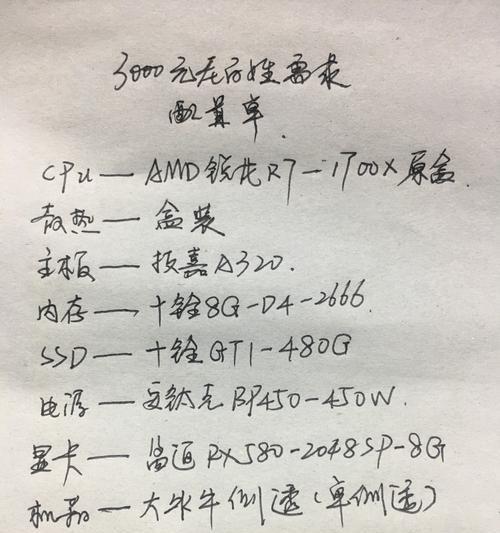 3000元老百姓需求
配算单
CPU—AMD锐龙R7—1700X原盒
散热—盒装
主板—技嘉A320.
内存—十铨8G-D4-2666.
SSD—十铨GT1-480G
电源—安钛克BP450-450W.
显卡—RX580-2048SP-8G
机箱—大水牛侧透(单侧透)